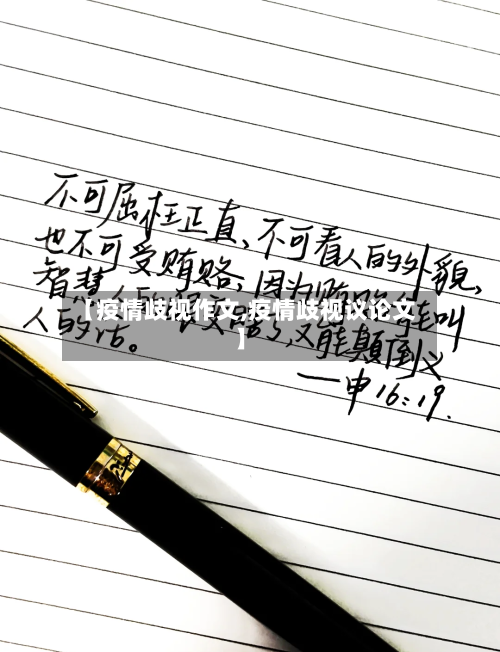 不可屈枉正直、不可看人的外貌,
也不可受贿赂;因为贿赂能叫
智慧人的眼变瞎了,又能颠倒义
人的话。
——申16:19.
【疫情歧视作文,疫情歧视议论文
】